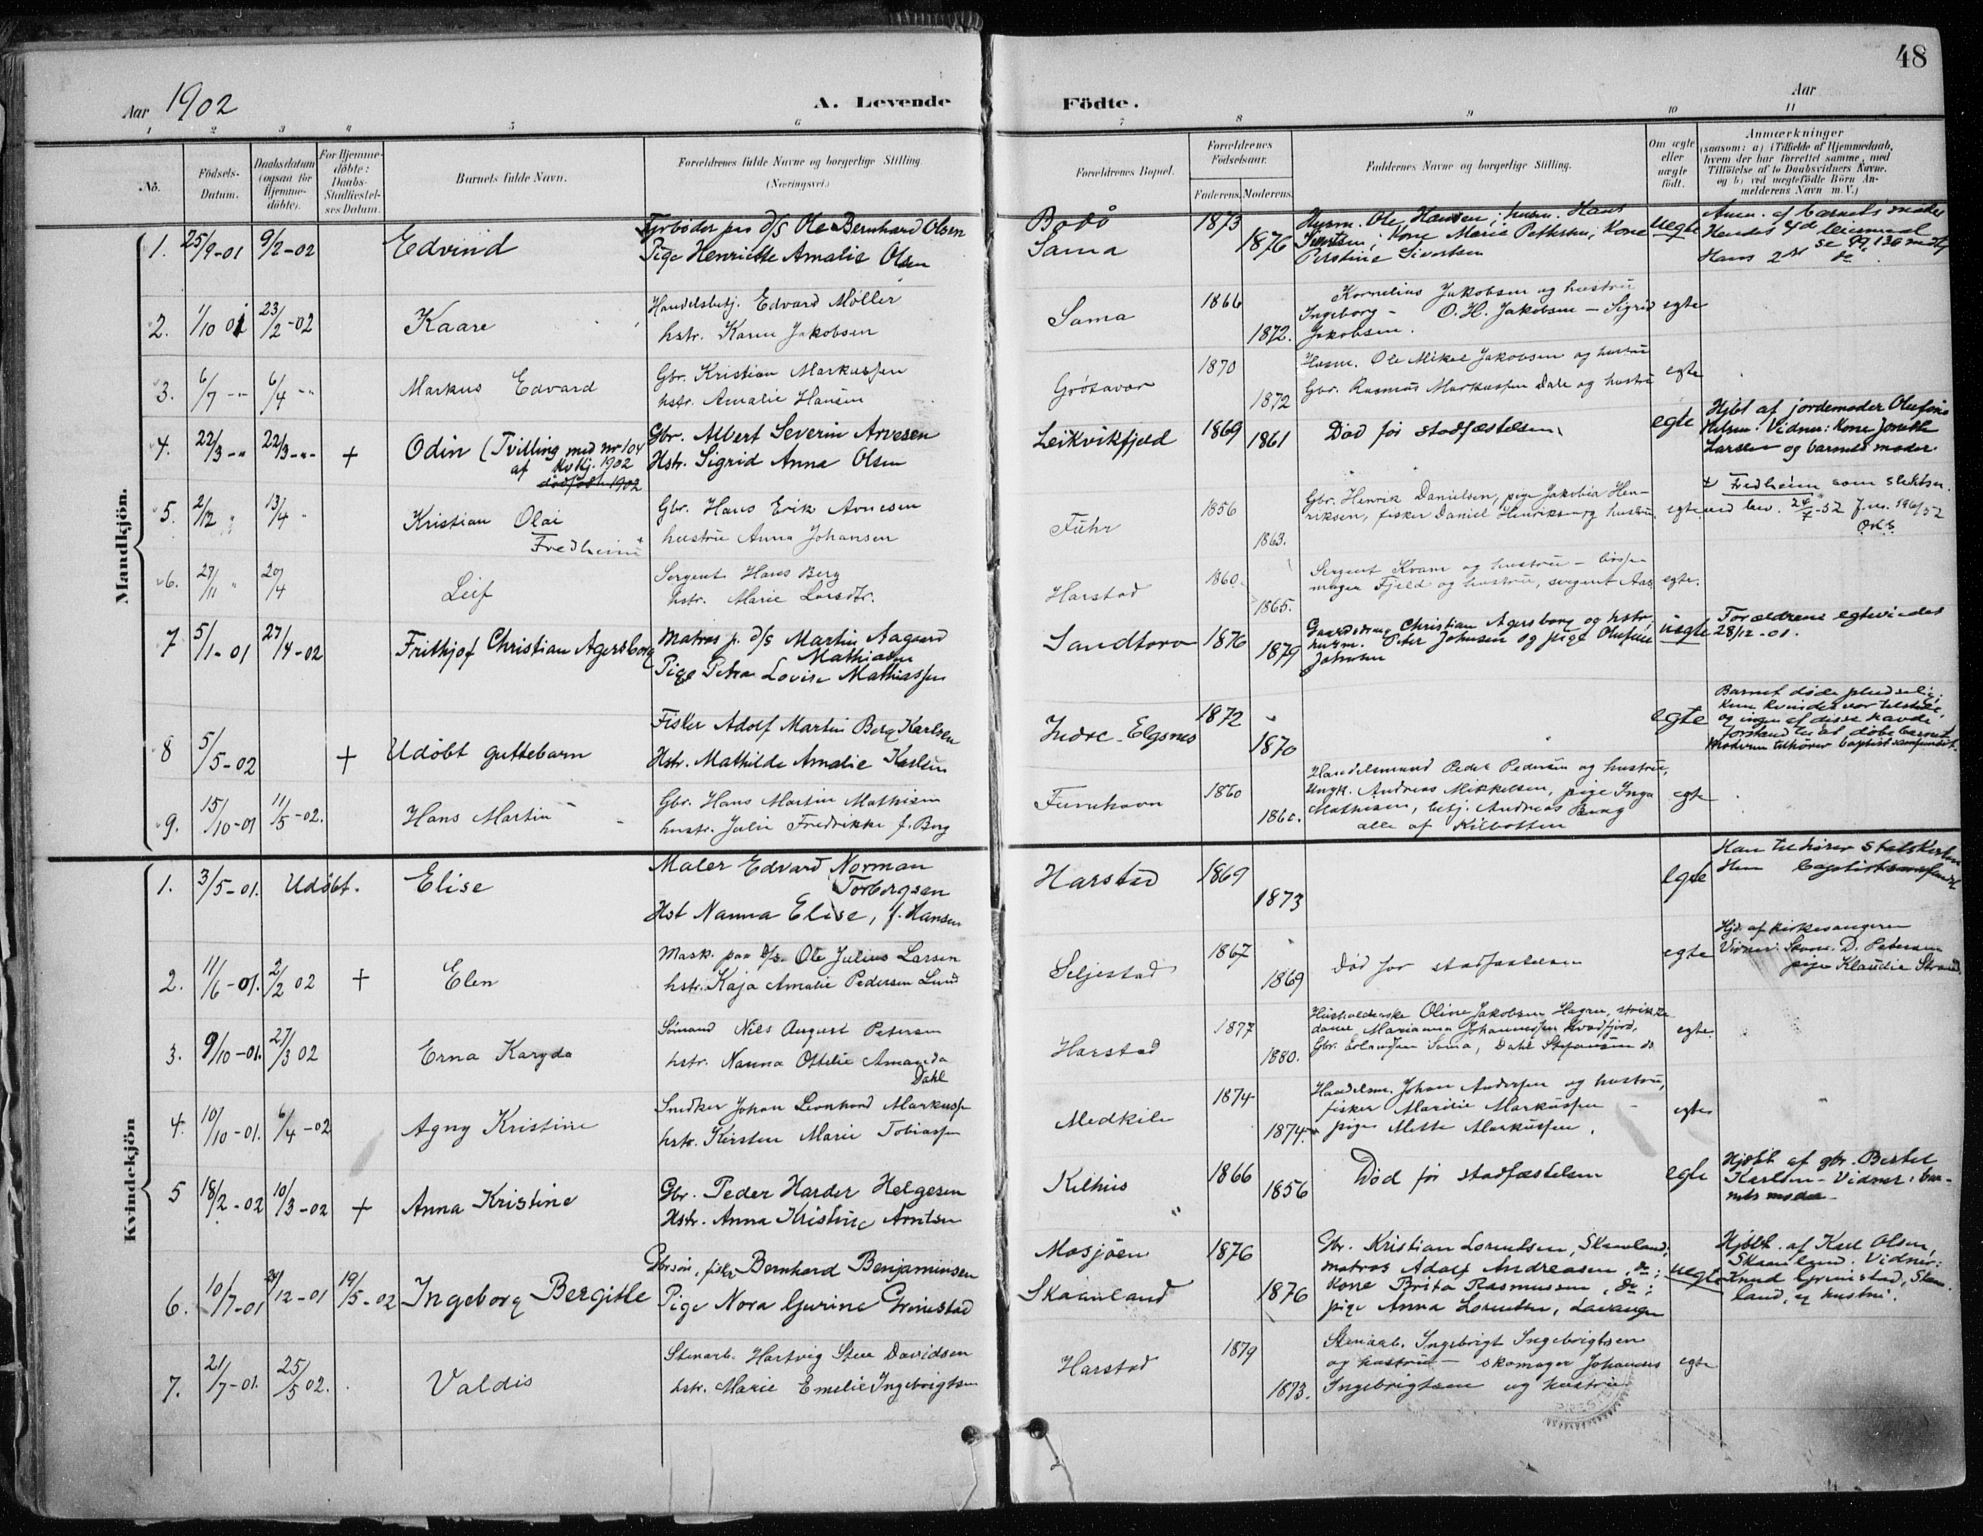 48
Aar 1902
A. Levende
Födte.
Aar
1 2 3 4 5 6 7 8 9 10 11
No.
Födsels-
Datum.
Daabsdatum
(ogsaa for
Hjemme-
döbte).
For Hjemme-
döbte:
Daabs-
Stadfæstel-
ses Datum.
Barnets fulde Navn.
Forældrenes fulde Navne og borgerlige Stilling.
(Næringsvei.)
Forældrenes Bopæl.
Forældrenes
Födselsaar.
Faderens. Moderens.
Faddernes Navne og borgerlige Stilling.
Om ægte
eller
uægte
födt.
Anmærkninger
(saasom: a) i Tilfælde af Hjemmedaab,
hvem der har forrettet samme, med
Tilföielse af to Daabsvidners Navne,
og b) ved uægtefödte Börn An-
melderens Navn m. V.)
Mandkjön.
1. 25/9-01 9/2-02 Edvind
Fyrbøder paa d/s Ole Bernhard Olsen
Pige Henriette Amalie Olsen
Bodø
Sama
1873
1876
Husm. Ole Hansen, husm. Hans
Kone Marie Kone
Sivertsen
uegte
Anm. af barnets moder
Hendes 4de leiermaal
Hans 2det do
2. 1/10 01 23/2-02 Kaare
Handelsbetj. Edvard Møller
hstr. Karen Jakobsen
Sama
1866
1872.
Kornelius Jakobsen og hustru
Ingeborg - O. H. Jakobsen - Sigrid
Jakobsen.
egte
3. 6/7 -"- 6/4 -"- Markus Edvard
Gbr. Kristian Markussen
hstr. Amalie Hansen
Grøsavar
1870
1872
Husm. Ole Mikal Jakobsen og hustru
Gbr. Rasmus Markussen Dale og hustru
egte
4. 22/3 -"- 22/3 -"- + Odin (Tvilling med nr 104
af Kvkj. 1902
dødfødte 1902
Gbr. Albert Severin Arvesen
Hstr. Sigrid Anna Olsen
Leikvikfjeld
1869
1861
Død før stadfæstelsen
egte
Hjdbt af jordemoder Olufine
Nielsen. Vidner: Kone
Larsen og barnets moder.
5. 2/12 " 13/4 " Kristian Olai
Fredheim +
Gbr. Hans Erik Arnesen
hustru Anna Johansen
Fuhr
1856
1863.
Gbr. Henrik Danielsen, pige Jakobia Hen-
riksen, fisker Daniel Henriksen og hustru.
egte
+ Fredheim som slektsn.
ved bev. 24/7-52 J.nr. 196/52
6. 27/11 " 20/4 Leif
Sergent Hans Berg
hstr. Marie Larsdtr.
Harstad
1860.
1865.
Sergent Kvam og hustru - børse-
mager Fjeld og hustru, sergent Aas
egte.
7 5/1-01 27/4-02 Frithjof Christian Agersborg
Matros p. d/s Martin Aagaard
Mathiasen
Pige Petra Lovise Mathiassen
Sandtorv
1876
1879
Gaardbrug. Christian Agersborg og hstr,
husm. Peter Johnsen og pige Olufine
Johnsen
uegte
Forældrene egteviedes
28/12-01.
8 5/5-02 + Udøbt guttebarn
Fisker Adolf Martin Berg Karlsen
Hstr. Mathilde Amalie Karlsen
Indre-Elgsnes
1872
1870
egte
Barnet døde pludselig;
kun kvinder var tilstede,
og ingen af disse havde
forstand til at døbe barnet.
Moderen tilhører baptistsamfundet.
9. 15/10-01 11/5-02. Hans Martin
Gbr. Hans Martin Mathisen
hustr. Julie Fredrikke f. Berg
Furuhavn
1860
1860.
Handelsmand Peder Pedersen og hustru,
Ungk. Andreas Mikkelsen, pige Inga
Mathisen, betj. Andreas Berg
alle af Kilbotten
egte
Kvindekjön
1. 3/5-01. Udøbt. Elise
Maler Edvard Norman
Torbergsen
Hst Nanna Elise, f. Hansen
Harstad
1869
1873
egte
Han tilhører statskirken
Hun baptistsamfundet
2. 11/6-01. 2/2 02 + Elen
Mask. paa d/s. Ole Julius Larsen
hstr. Kaja Amalie Pedersen Lund
Seljestad
1867
1869
Død før stadfæstelsen
egte
Hjd. af kirkesangeren
Vidner: Skom. D. Petersen
pige Klaudie Strand
3. 9/10-01. 27/3 02 Erna Karyda
Sømand Nils August Petersen
hstr. Nanna Ottelie Amanda
Dahl
Harstad
1877
1880.
Husholderske Oline Jakobsen Hagen, strikke-
dame Marianna Johannessen Kvæfjord,
Gbr. Erlandsen Sama, Dahl Stefansen do
egte.
4. 10/10-01. 6/4-02 Agny Kristine
Snedker Johan Leonhard Markussen
hstr. Kirsten Marie Tobiassen
Medkile
1874
1874
Handelsm. Johan Andersen og hustru,
fisker Marilie Markussen -
pige Mette Markussen.
egte
5 18/2-02 10/3-02 + Anna Kristine
Gbr. Peder Harder Helgesen
Hstr. Anna Kristine Arntsen
Kilhus
1866
1856
Død før stadfæstelsen
egte
Hjdbt af gbr. Bertel
Karlsen - Vidner: bar-
nets moder -
6. 10/7-01 26/12-01 19/5-02 Ingeborg Bergitte
Gbrsøn, fisker Bernhard Benjaminsen
Pige Nora Gurine Grimstad
Mosjøen
Skaanland
1876
1876
Gbr. Kristian Lorentsen, Skaanland,
matros Adolf Andreasen, do;
kone Brita Rasmussen, do;
pige Anna Lorentsen, Lavangen
uegte
Hjdbt. af Karl Olsen,
Skaanland. Vidner:
Knud Grimstad, Skaan-
land, og hustru.
7. 21/7-01. 25/5 02. Valdis
Stenarb. Hartvig Stene Davidsen
hstr. Marie Emelie Ingebrigtsen
Harstad
1879
1873.
Stenarb. Ingebrigt Ingebrigtsen
og hustru - skomager Johannes
Ingebrigtsen og hustru
egte